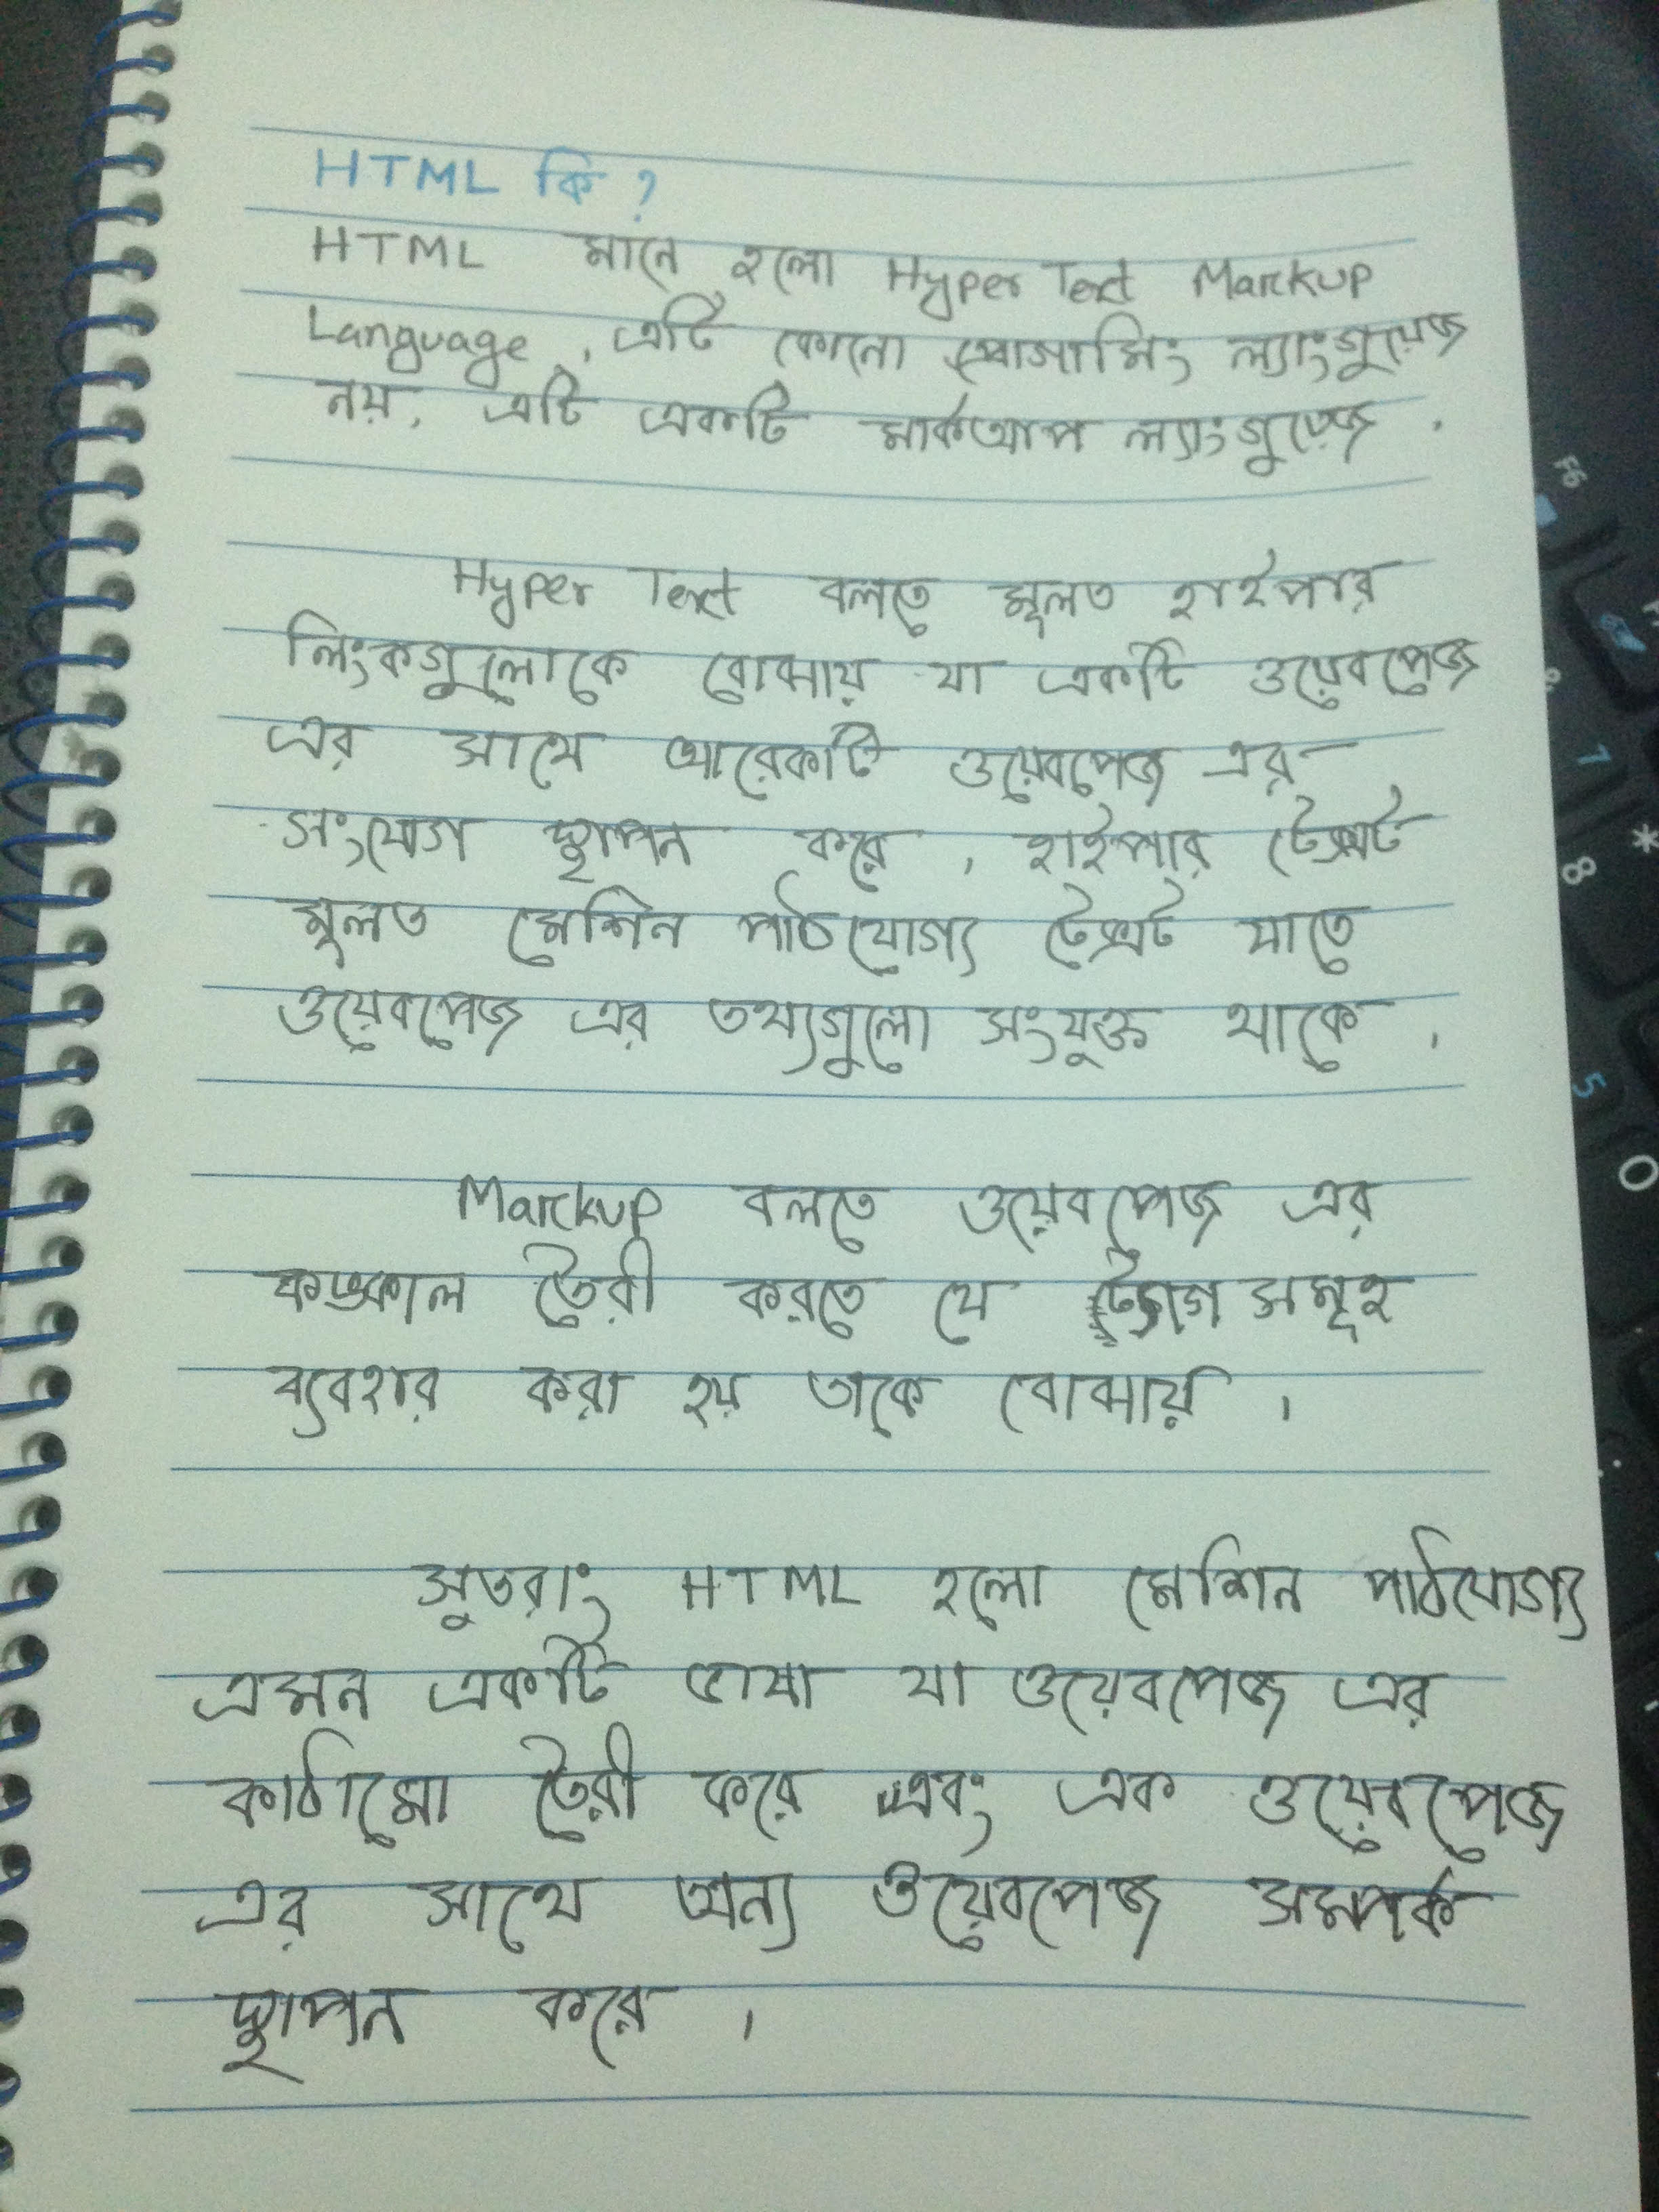 HTML কি ?
HTML মানে হলো Hyper Text Markup
Language , এটি কোনো প্রোগ্রামিং ল্যাংগুয়েজ
নয়, এটি একটি মার্কআপ ল্যাংগুয়েজ .
Hyper Text বলতে মূলত হাইপার
লিংকগুলোকে বোঝায় যা একটি ওয়েবপেজ
এর সাথে আরেকটি ওয়েবপেজ এর
সংযোগ স্থাপন করে , হাইপার টেক্সট
মূলত মেশিন পাঠযোগ্য টেক্সট যাতে
ওয়েবপেজ এর তথ্যগুলো সংযুক্ত থাকে ,
Markup বলতে ওয়েবপেজ এর
কঙ্কাল তৈরী করতে যে ট্যাগ সমূহ
ব্যবহার করা হয় তাকে বোঝায় ,
সুতরাং HTML হলো মেশিন পাঠযোগ্য
এমন একটি ভাষা যা ওয়েবপেজ এর
কাঠামো তৈরী করে এবং এক ওয়েবপেজ
এর সাথে অন্য ওয়েবপেজ সম্পর্ক
স্থাপন করে ,
F6
7
8
*
5
0